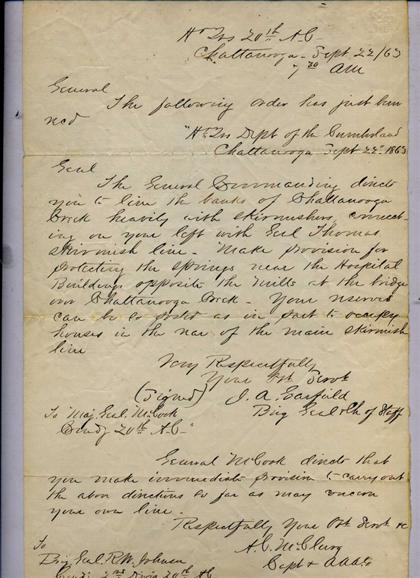 Hd Qrs 20th A.C.
Chattanooga Sept 22/63
7 30 AM
General
The following order has just been
recd
"Hd Qrs Dept of the Cumberland
Chattanooga Sept 22d 1863
Genl
The General Commanding directs
you to line the banks of Chattanooga
Creek heavily with skirmishers, connect-
ing on your left with Genl Thomas
skirmish line. Make provision for
protecting the springs near the Hospital
Buildings opposite the Mills at the bridge
over Chattanooga Creek - Your reserves
can be so posted as in part to occupy
houses in the rear of the main skirmish
line
Very Respectfully
Your Obt Servt
(Signed) J. A. Garfield
Brig Genl & Ch of Staff
To Maj. Genl McCook
Comdg 20th A.C."
General McCook directs that
you make immediate provision to carry out
the above directions so far as may concern
your own line.
Respectfully Your Obt Servt &c
A.C. McClurg
Capt & A.A.A.G.
To
Brig Genl R.W. Johnson
Comdg 2nd Divn 20th A.C.